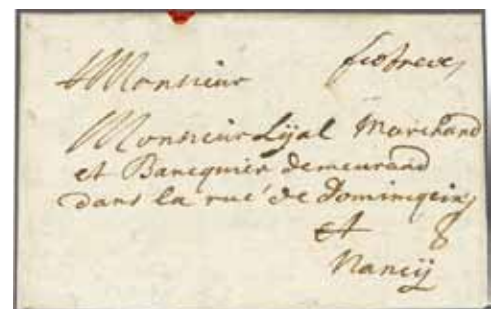 A Monsieur fco treves
Monsieur Lÿal Marchand
et Bancquier demeurand
dans la rue de Dominiquin
A 8
Nancÿ